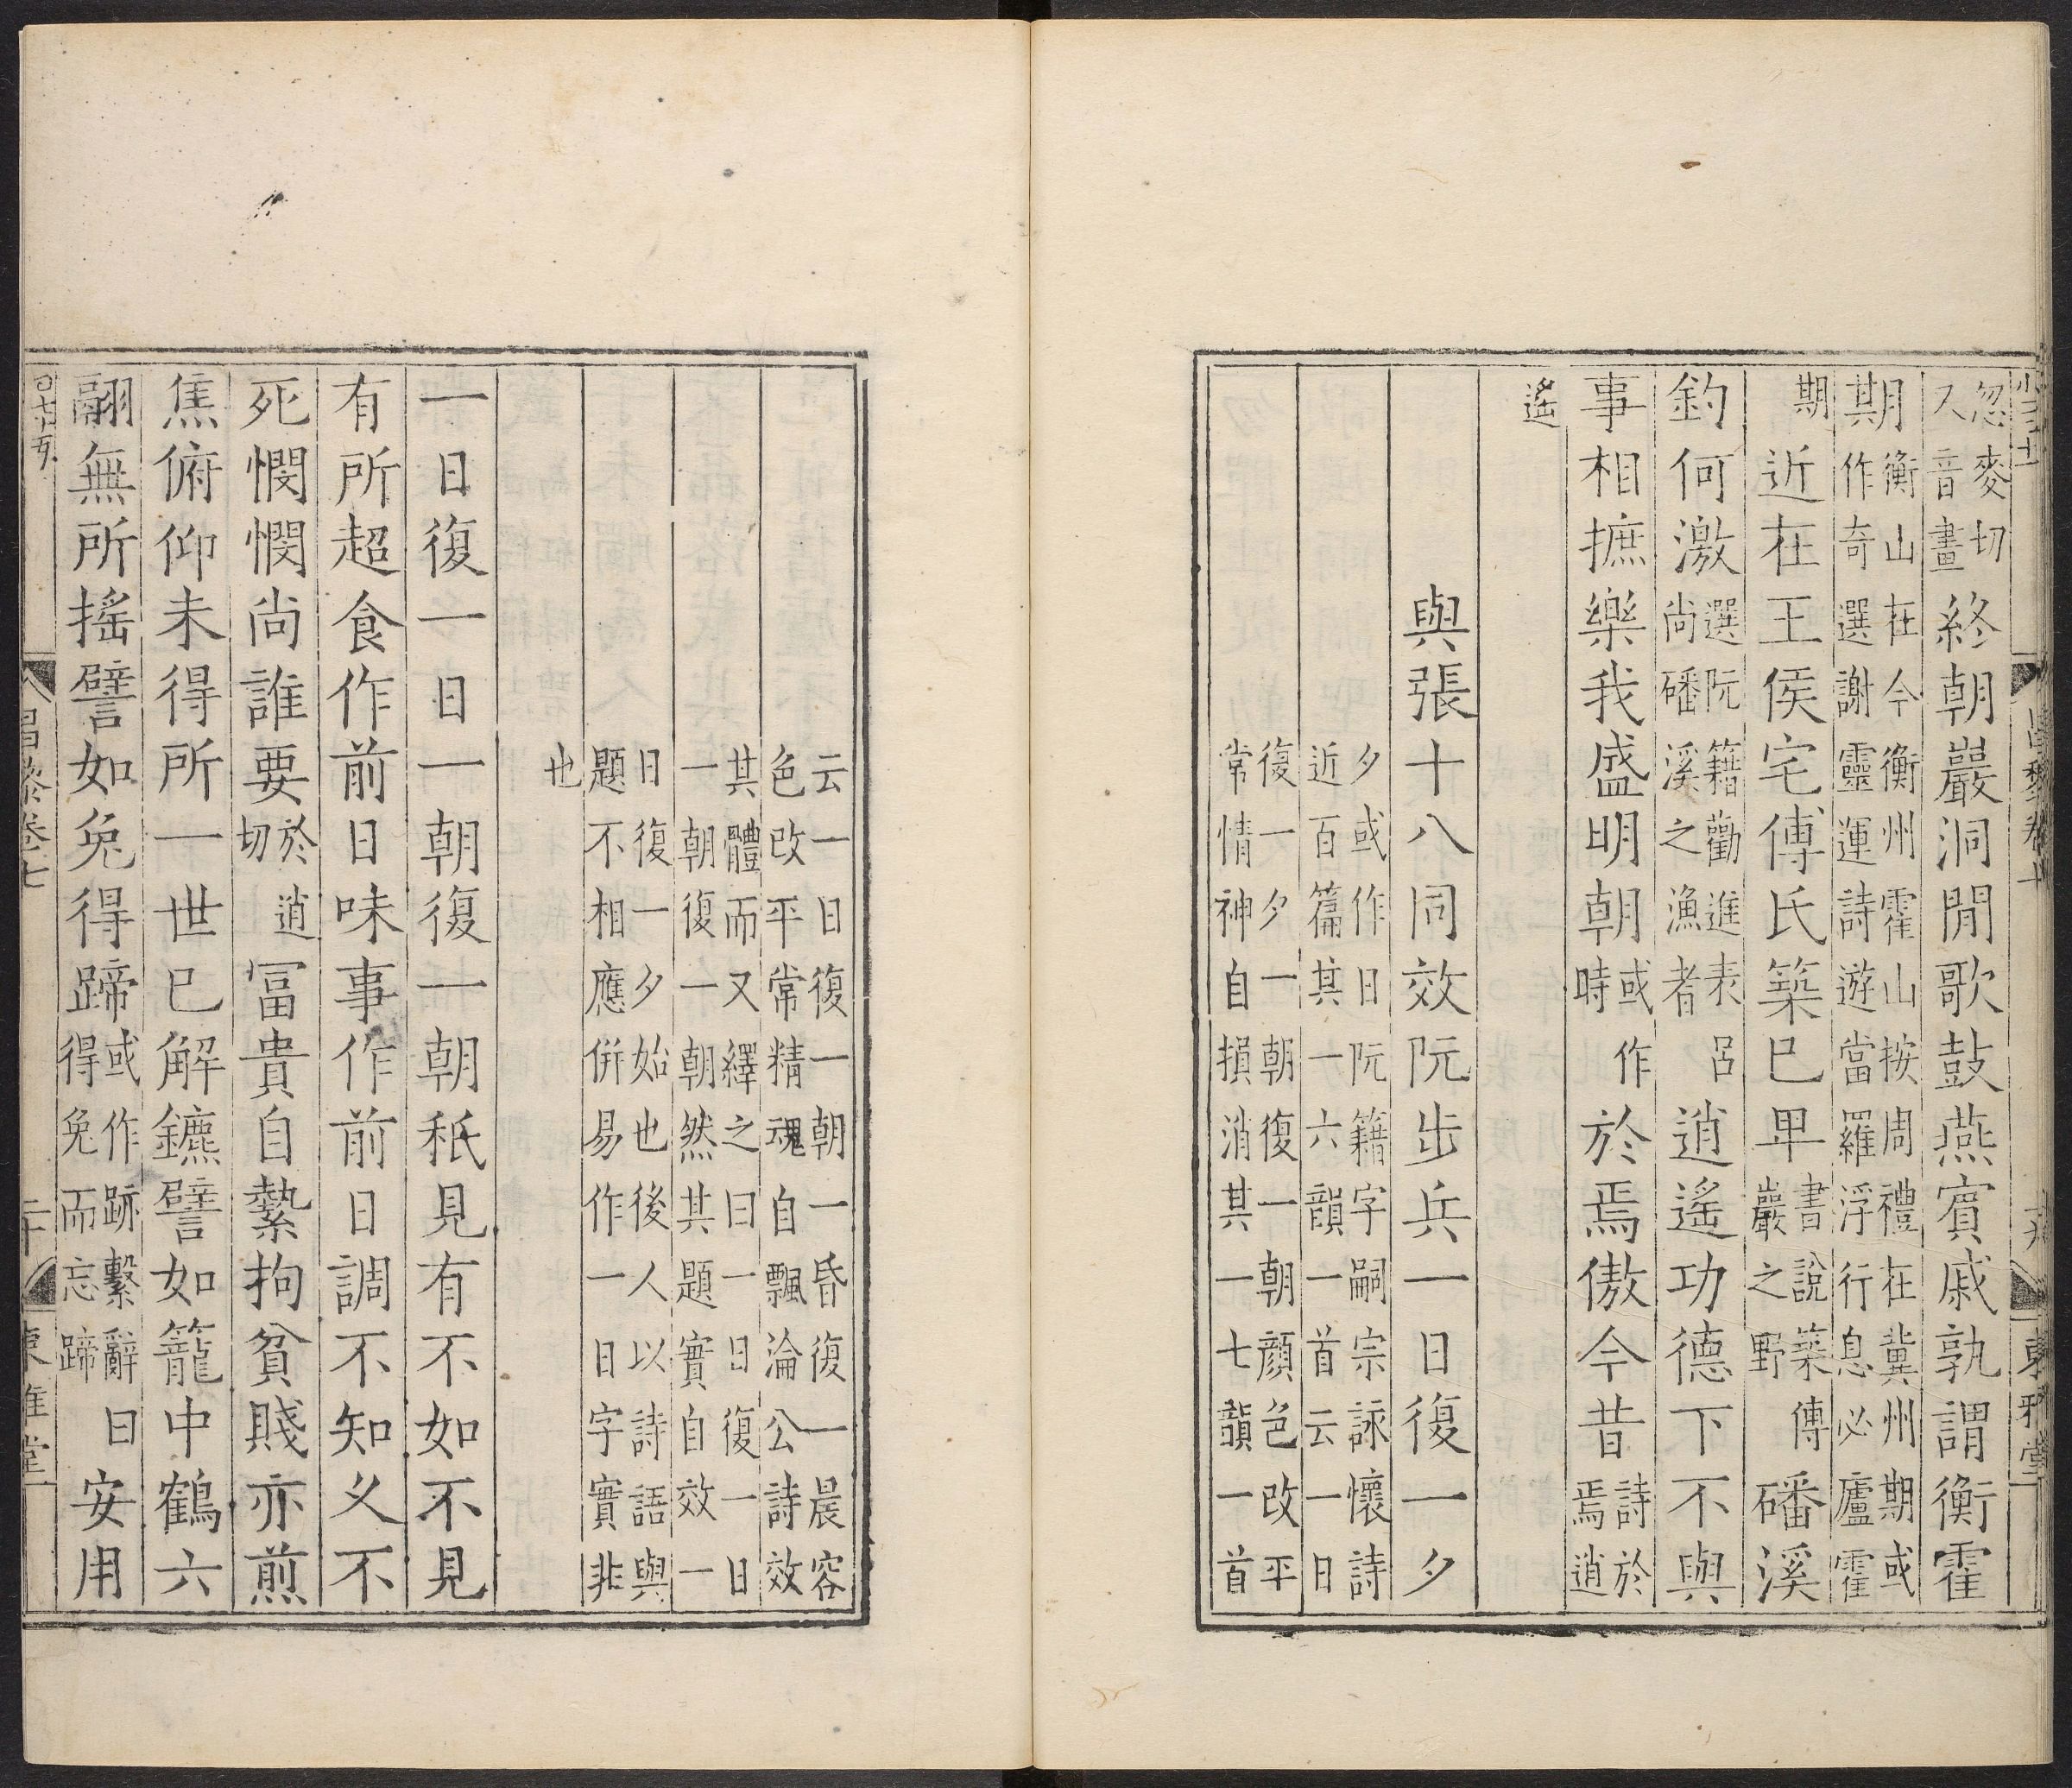 忽麥切又音畫終朝巖洞閒歌鼓燕賓戚孰謂衡霍
期衡山在今衡州霍山按周禮在冀州期或作奇選謝靈運詩遊當羅浮行息必廬霍
期近在王侯宅傅氏築已卑書說築傅巖之野磻溪
釣何激選阮籍勸進表呂尚磻溪之漁者逍遙功德下不與
事相摭樂我盛明朝或作時於焉傲今昔詩於焉逍
遙
與張十八同效阮步兵一日復一夕
夕或作日阮籍字嗣宗詠懷詩近百篇其一六韻一首云一日
復一夕一朝復一朝顏色改平常情神自損消其一七韻一首
云一日復一朝一昏復一晨容色改平常精魂自飄淪公詩效
其體而又繹之曰一日復一日一朝復一朝然其題實自效一
日復一夕始也後人以詩語與題不相應併易作一日字實非
也
一日復一日一朝復一朝秖見有不如不見
有所超食作前日味事作前日調不知乆不
死憫憫尚誰要於逍切冨貴自縶拘貧賤亦煎
焦俯仰未得所一世已解鑣譬如籠中鶴六
翮無所搖譬如兔得蹄或作跡繫辭曰得兔而忘蹄安用
昌黎卷七 二十 東雅堂